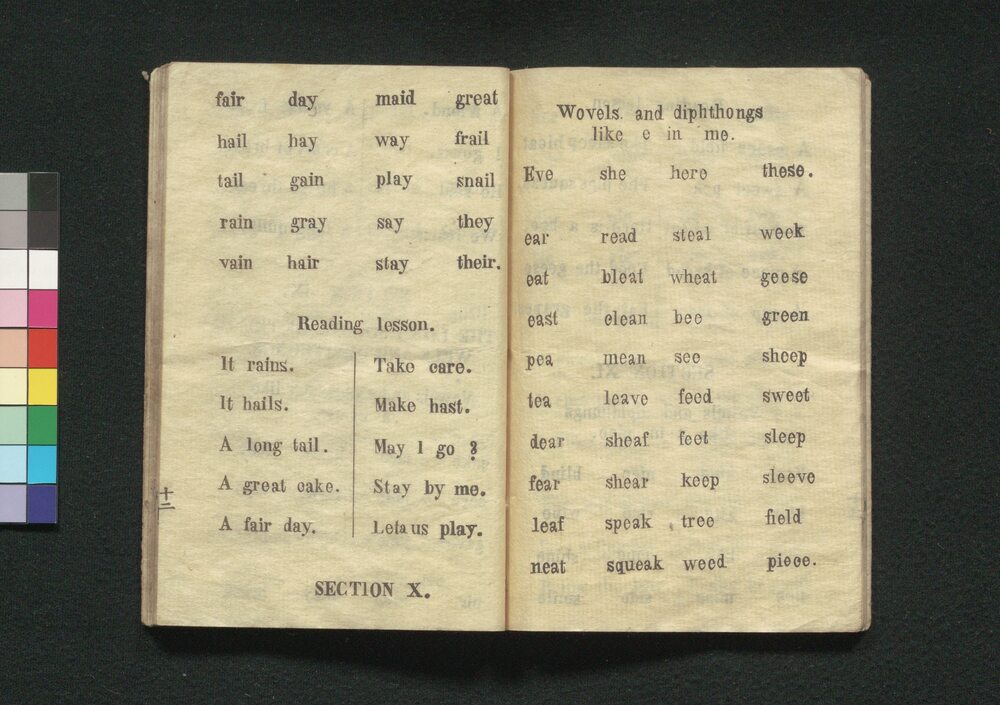 fair day maid great
hail hay way frail
tail gain play snail
rain gray say they
vain hair stay their.
Reading lesson.
It rains.
It hails.
A long tail.
A great cake.
A fair day.
Take care.
Make hast.
May I go ?
Stay by me.
Letaus play.
十二
SECTION X.
Wovels. and diphthongs
like e in me.
Eve she here these.
ear read steal week
eat bleat wheat geese
east clean bee green
pea mean see sheep
tea leave feed sweet
dear sheaf feet sleep
fear shear keep sleeve
leaf speak tree field
neat squeak weed piece.